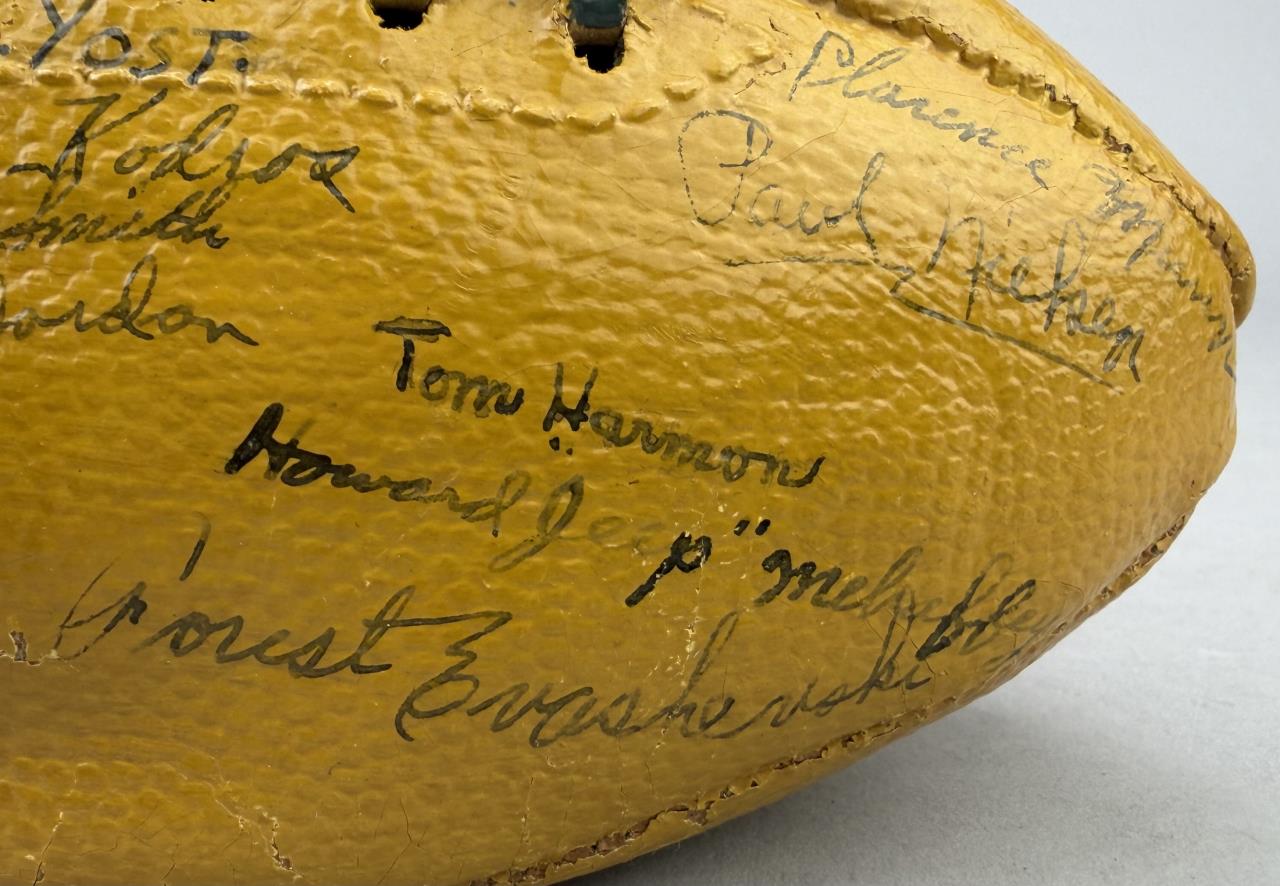 Yost.
Kodros
Smith
Jordon
Clarence Munn
Paul Nielsen
Tom Harmon
Howard Jeep" Mehaffey
Forest Evashevski